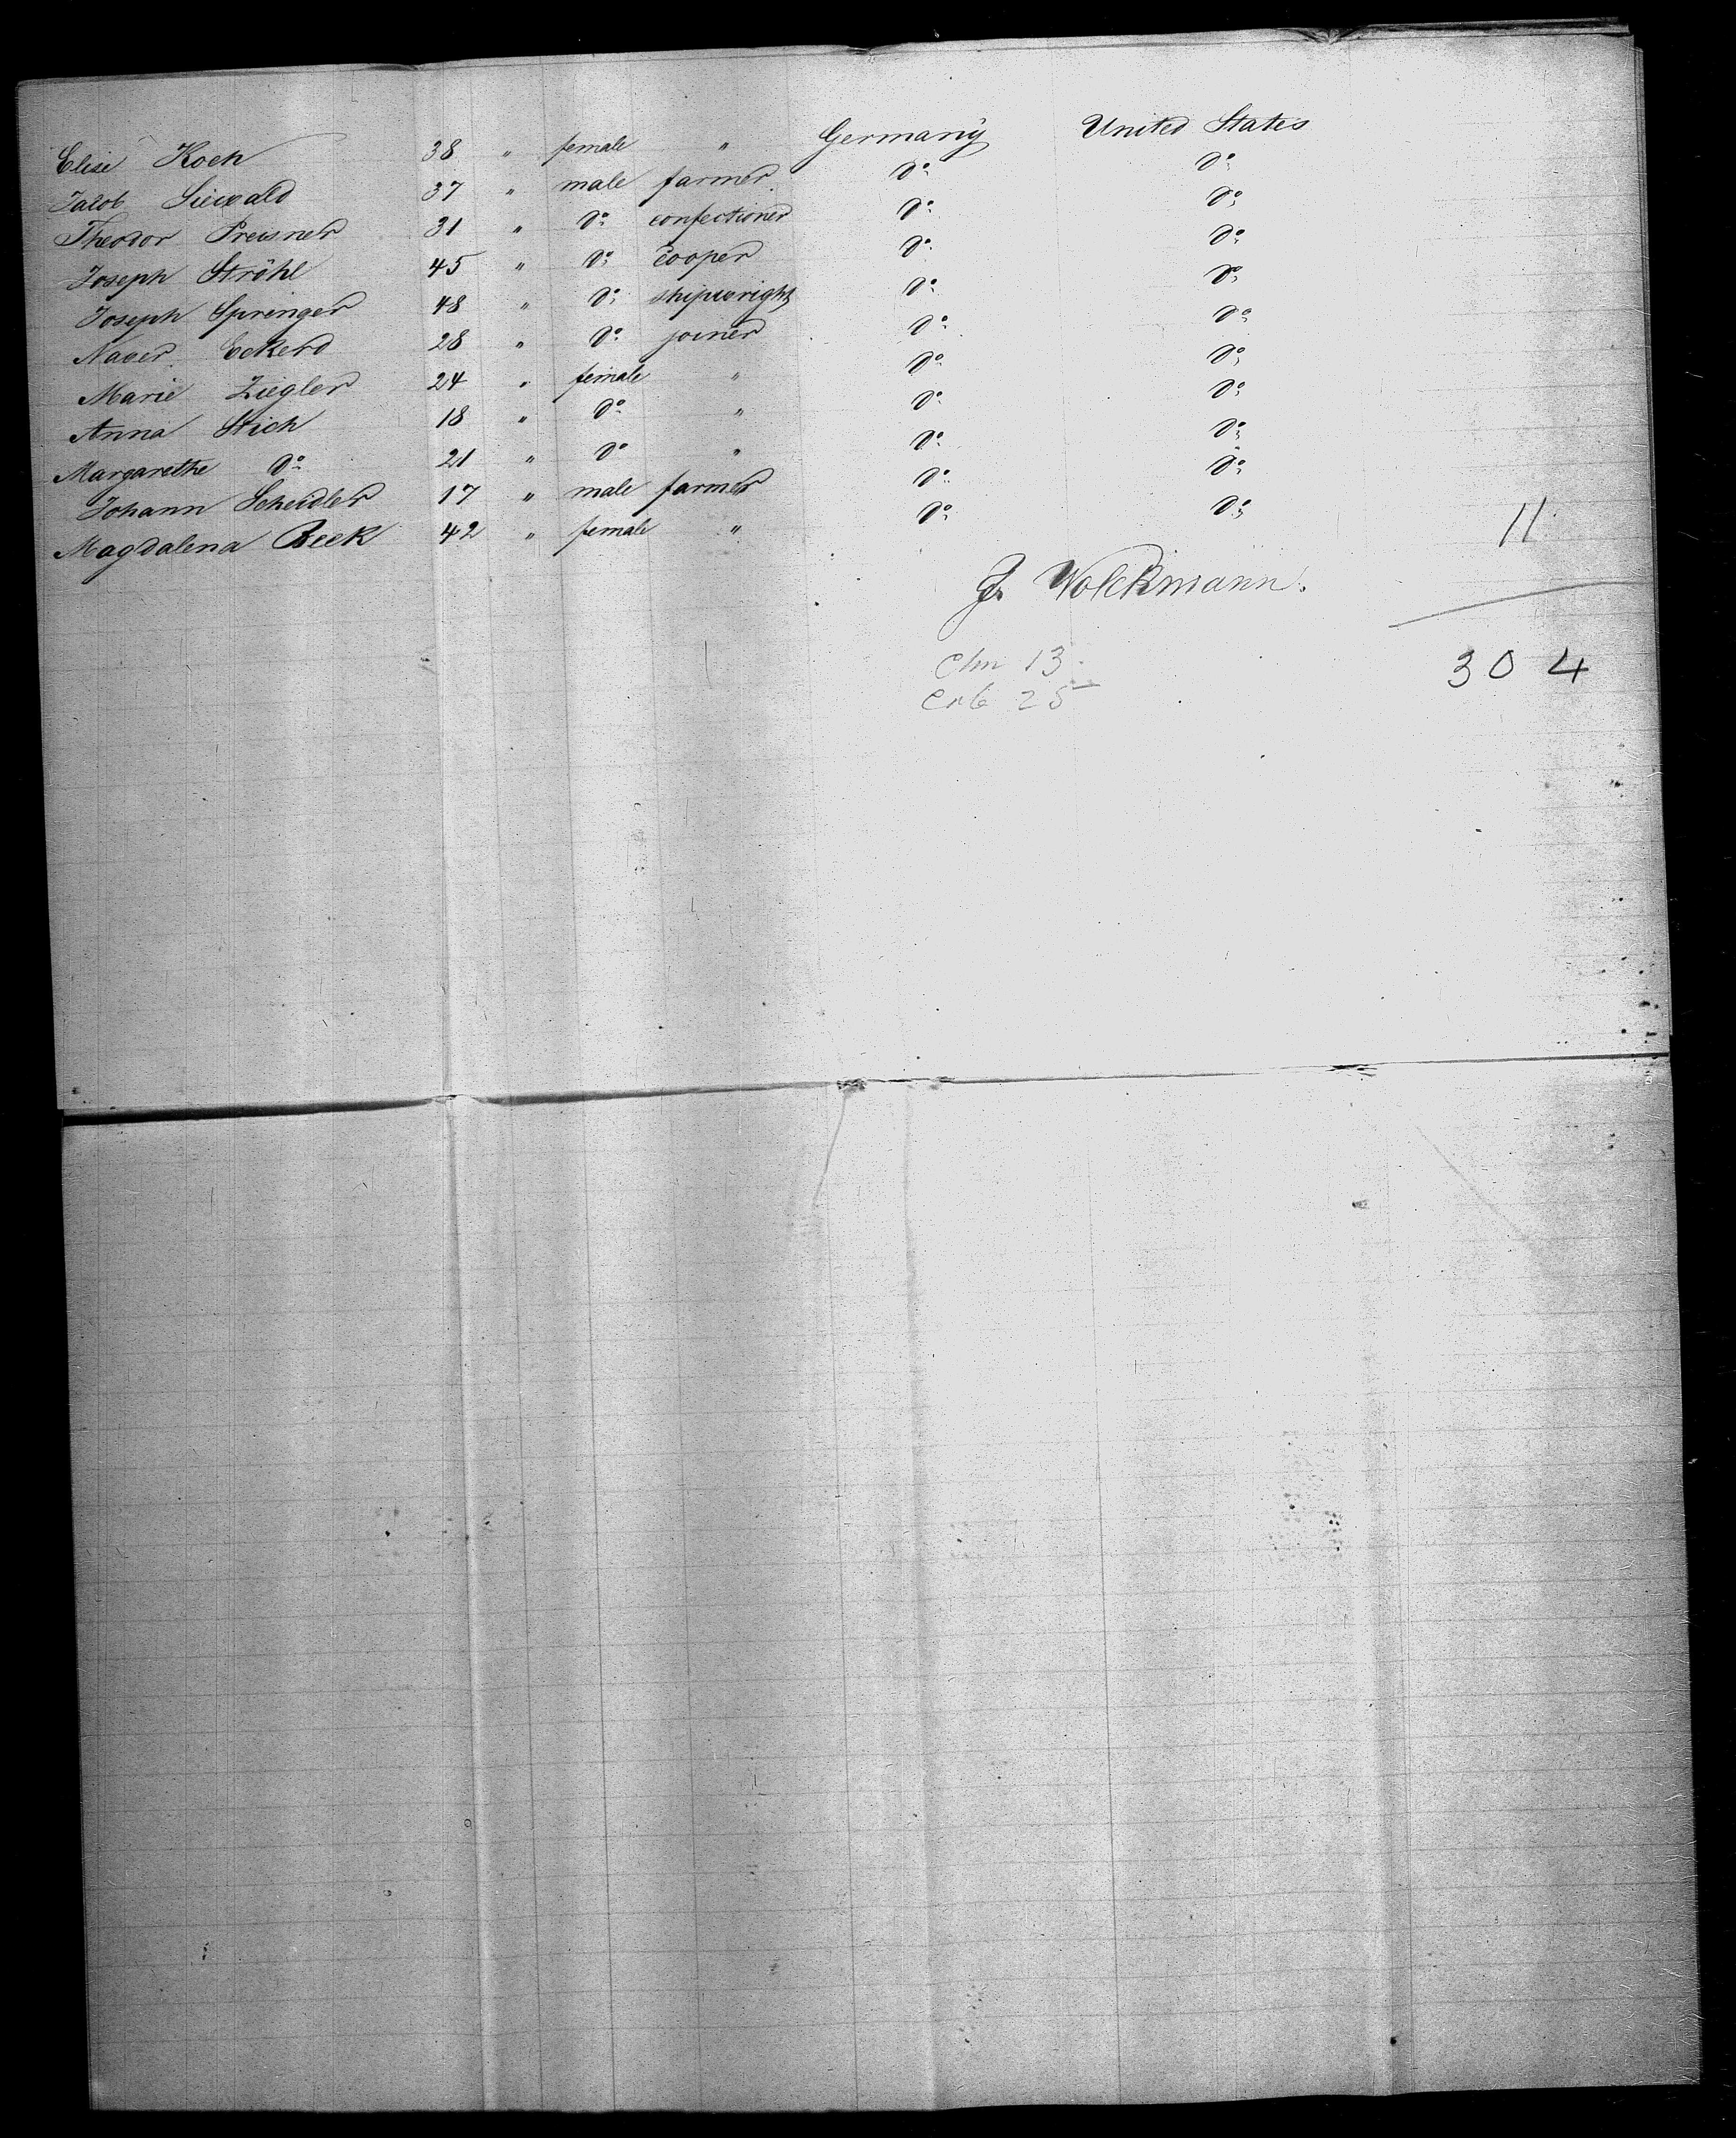 Elise Koch 38 " female " Germany United States
Jacob Siewald 37 " male farmer do do
Theodor Preusner 31 " do confectioner do do
Joseph Ströhl 45 " do cooper do do
Joseph Springer 48 " do shipwright do do
Naver Eckerd 28 " do joiner do do
Marie Ziegler 24 " female " do do
Anna Stich 18 " do " do do
Margarethe do 21 " do " do do
Johann Scheidler 17 " male farmer do do
Magdalena Beek 42 " female " do do
11
J. Volckmann.
Chn 13
25
304